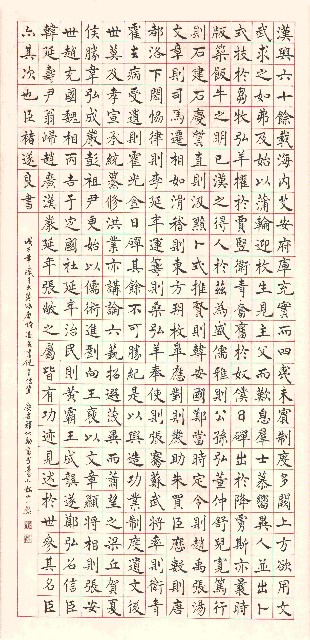 漢興六十餘載海內艾安府庫充實而四夷未賓制度多闕上方欲用文
武求之如弗及始以蒲輪迎枚生見主父而歎息群士慕嚮異人並出卜
式拔於芻牧弘羊擢於賈豎衛青奮於奴僕日磾出於降虜斯亦曩時
版築飯牛之明已漢之得人於茲為盛儒雅則公孫弘董仲舒兒寬篤行
則石建石慶質直則汲黯卜式推賢則韓安國鄭當時定令則趙禹張湯
文章則司馬遷相如滑稽則東方朔枚皋應對則嚴助朱買臣歷數則唐
都洛下閎協律則李延年運籌則桑弘羊奉使則張騫蘇武將率則衛青
霍去病受遺則霍光金日磾其餘不可勝紀是以興造功業制度遺文後
世莫及孝宣承統纂修洪業亦講論六藝招選茂異而蕭望之梁丘賀夏
侯勝韋弘成嚴彭祖尹更始以儒術進劉向王褒以文章顯將相則張安
世趙充國魏相丙吉于定國杜延年治民則黃霸王成龔遂鄭弘召信臣
韓延壽尹翁歸趙廣漢嚴延年張敞之屬皆有功迹見述於世參其名臣
亦其次也臣褚遂良書